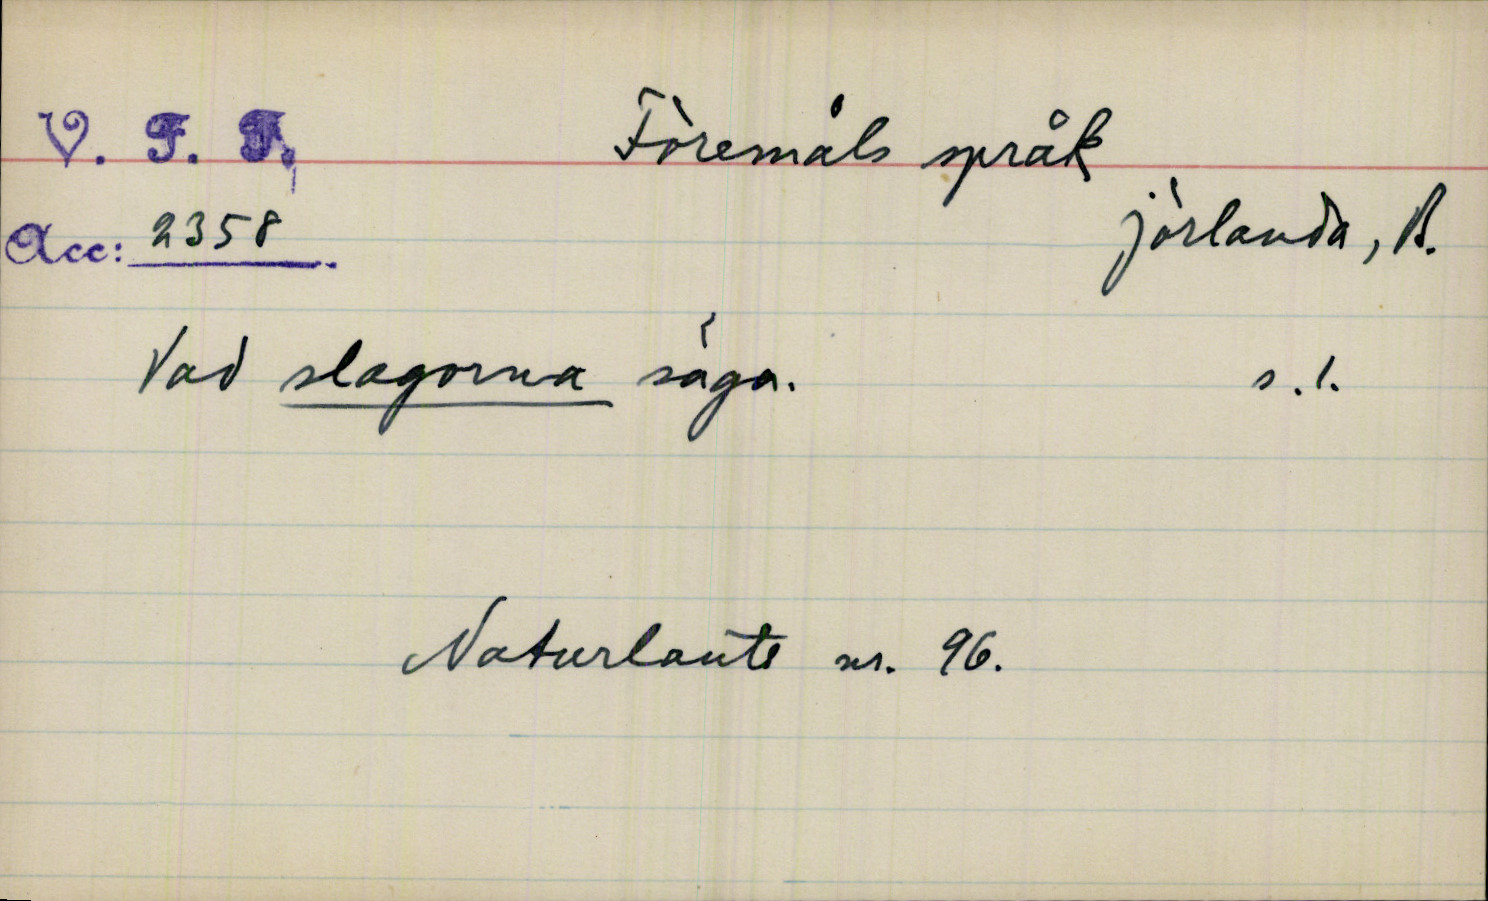 V. F. F. Föremåls språk
Jörlanda, B.
Acc: 2358
Vad slagorna säga. s. 1.
Naturlaute nr. 96.